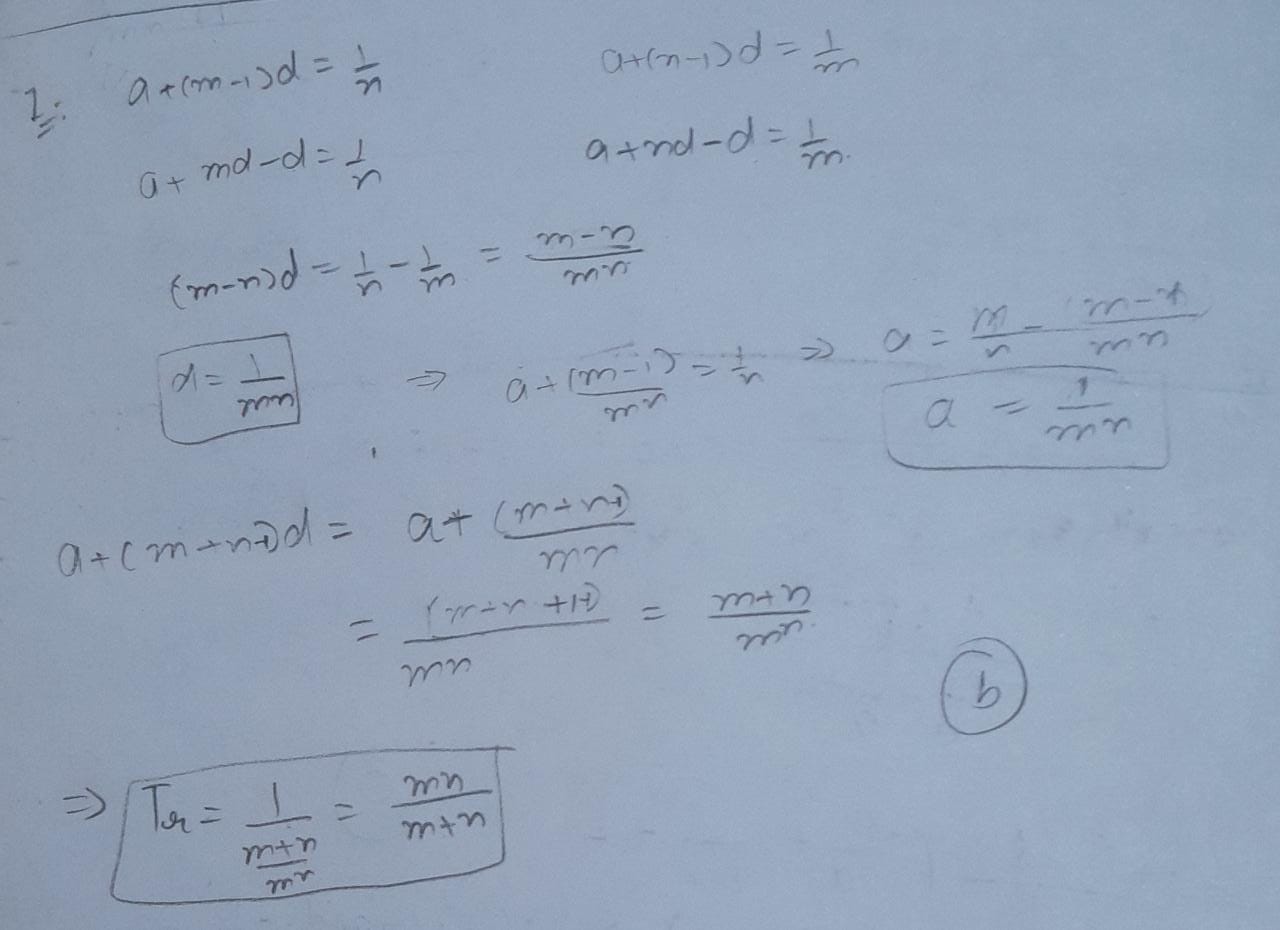 1. a+(m-1)d = 1/n    a+(n-1)d = 1/m
a+md-d = 1/n    a+nd-d = 1/m.
(m-n)d = 1/n - 1/m = (m-n)/mn
d = 1/mn ⇒ a + (m-1)/mn = 1/n ⇒ a =
a = 1/mn
a+(m+n-1)d = a+ (m+n-1)/mn
= (1+m+n-1)/mn = (m+n)/mn.
b
⇒ Tr = 1/((m+n)/mn) = mn/(m+n)